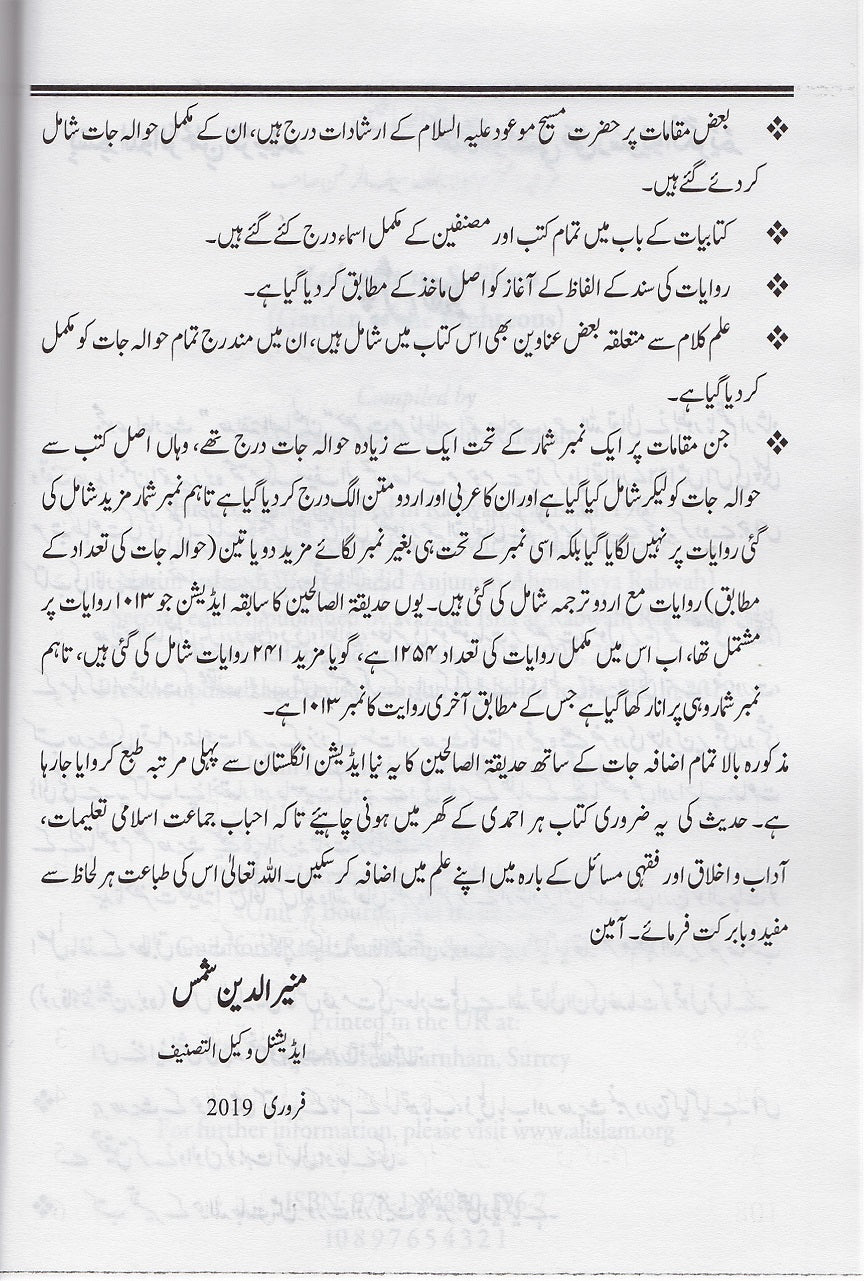 ❖ بعض مقامات پر حضرت مسیح موعود علیہ السلام کے ارشادات درج ہیں، ان کے مکمل حوالہ جات شامل
کر دئے گئے ہیں۔
❖ کتابیات کے باب میں تمام کتب اور مصنفین کے مکمل اسماء درج کئے گئے ہیں۔
❖ روایات کی سند کے الفاظ کے آغاز کو اصل ماخذ کے مطابق کر دیا گیا ہے۔
❖ علم کلام سے متعلقہ بعض عناوین بھی اس کتاب میں شامل ہیں، ان میں مندرج تمام حوالہ جات کو مکمل
کر دیا گیا ہے۔
❖ جن مقامات پر ایک نمبر شمار کے تحت ایک سے زیادہ حوالہ جات درج تھے، وہاں اصل کتب سے
حوالہ جات کو لیکر شامل کیا گیا ہے اور ان کا عربی اور اردو متن الگ درج کر دیا گیا ہے تاہم نمبر شمار مزید شامل کی
گئی روایات پر نہیں لگایا گیا بلکہ اسی نمبر کے تحت ہی بغیر نمبر لگائے مزید دو یا تین (حوالہ جات کی تعداد کے
مطابق) روایات مع اردو ترجمہ شامل کی گئی ہیں۔ یوں حدیقۃ الصالحین کا سابقہ ایڈیشن جو ۱۰۱۳ روایات پر
مشتمل تھا، اب اس میں مکمل روایات کی تعداد ۱۲۵۴ ہے، گویا مزید ۲۴۱ روایات شامل کی گئی ہیں، تاہم
نمبر شمار وہی پرانا رکھا گیا ہے جس کے مطابق آخری روایت کا نمبر ۱۰۱۳ ہے۔
مذکورہ بالا تمام اضافہ جات کے ساتھ حدیقۃ الصالحین کا یہ نیا ایڈیشن انگلستان سے پہلی مرتبہ طبع کروایا جا رہا
ہے۔ حدیث کی یہ ضروری کتاب ہر احمدی کے گھر میں ہونی چاہیئے تاکہ احباب جماعت اسلامی تعلیمات،
آداب و اخلاق اور فقہی مسائل کے بارہ میں اپنے علم میں اضافہ کر سکیں۔ اللہ تعالیٰ اس کی طباعت ہر لحاظ سے
مفید و بابرکت فرمائے۔ آمین
منیر الدین شمس
ایڈیشنل وکیل التصنیف
فروری 2019